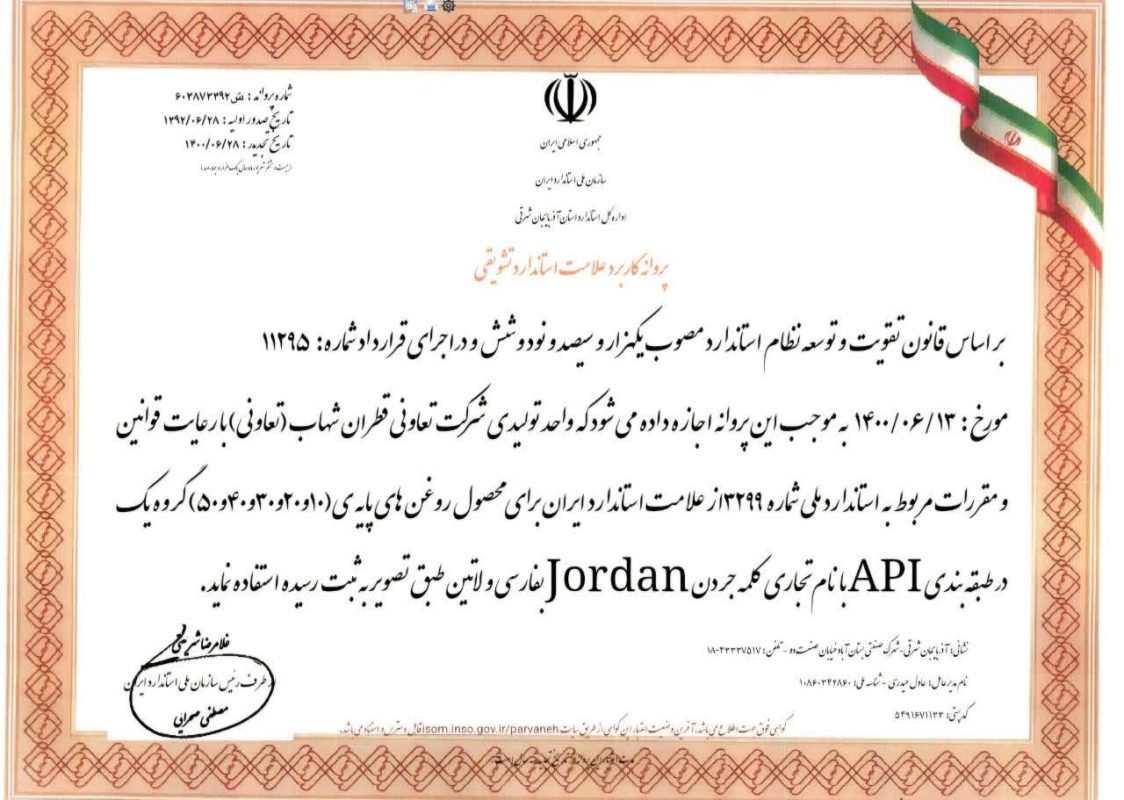 جمهوری اسلامی ایران
سازمان ملی استاندارد ایران
اداره کل استاندارد استان آذربایجان شرقی
شماره پروانه : ۶۰۳۸۷۳۳۹۲
تاریخ صدور اولیه : ۱۳۹۲/۰۶/۲۸
تاریخ تجدید : ۱۴۰۰/۰۶/۲۸
پروانه کاربرد علامت استاندارد تشویقی
بر اساس قانون تقویت و توسعه نظام استاندارد مصوب یکهزار و سیصد و نود و شش و در اجرای قرارداد شماره : ۱۱۲۹۵
مورخ : ۱۴۰۰/۰۶/۱۳ به موجب این پروانه اجازه داده می شود که واحد تولیدی شرکت تعاونی قطران شهاب (تعاونی) با رعایت قوانین
و مقررات مربوط به استاندارد ملی شماره ۳۲۹۹ از علامت استاندارد ایران برای محصول روغن های پایه ی (۱۰و۲۰و۳۰و۴۰و۵۰) گروه یک
در طبقه بندی API با نام تجاری کلمه جردن Jordan بفارسی و لاتین طبق تصویر به ثبت رسیده استفاده نماید.
نشانی: آذربایجان شرقی - شهرک صنعتی بستان آباد خیابان صنعت دو - تلفن: ۴۳۳۳۷۵۱۷-۱۸
نام مدیر عامل: عادل حیدری - شناسه ملی: ۱۰۸۶۰۳۴۲۸۶۰
کد پستی: ۵۴۹۱۶۷۱۱۲۳
غلامرضا شریعتی
از طرف رئیس سازمان ملی استاندارد ایران
مصطفی صحرایی
گواهی فوق جهت اطلاع می باشد، آخرین وضعیت اعتبار این گواهی از طریق سایت isom.inso.gov.ir/parvaneh قابل دسترس و استناد می باشد.